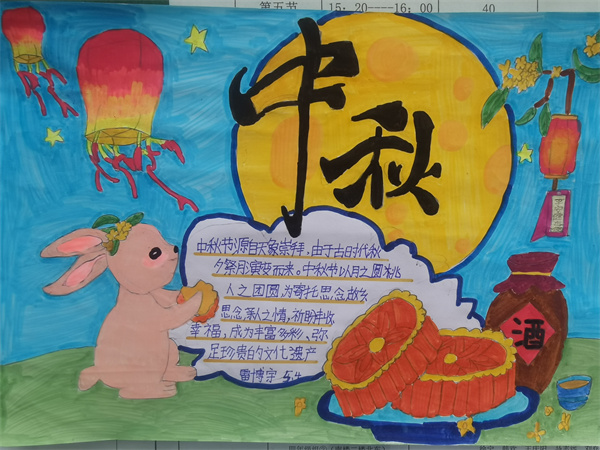 第五节 15:20----16:00 40
中秋
中秋节源自天象崇拜,由于古时代秋
夕祭月演变而来。中秋节以月之圆桃
人之团圆,为寄托思念故乡
思念亲人之情,祈盼丰收
幸福,成为丰富多彩、弥
足珍贵的文化遗产
雷博宇 5.4
酒